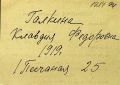 Галкина
Клавдия Федоровна
1919.
1 Песчаная 25